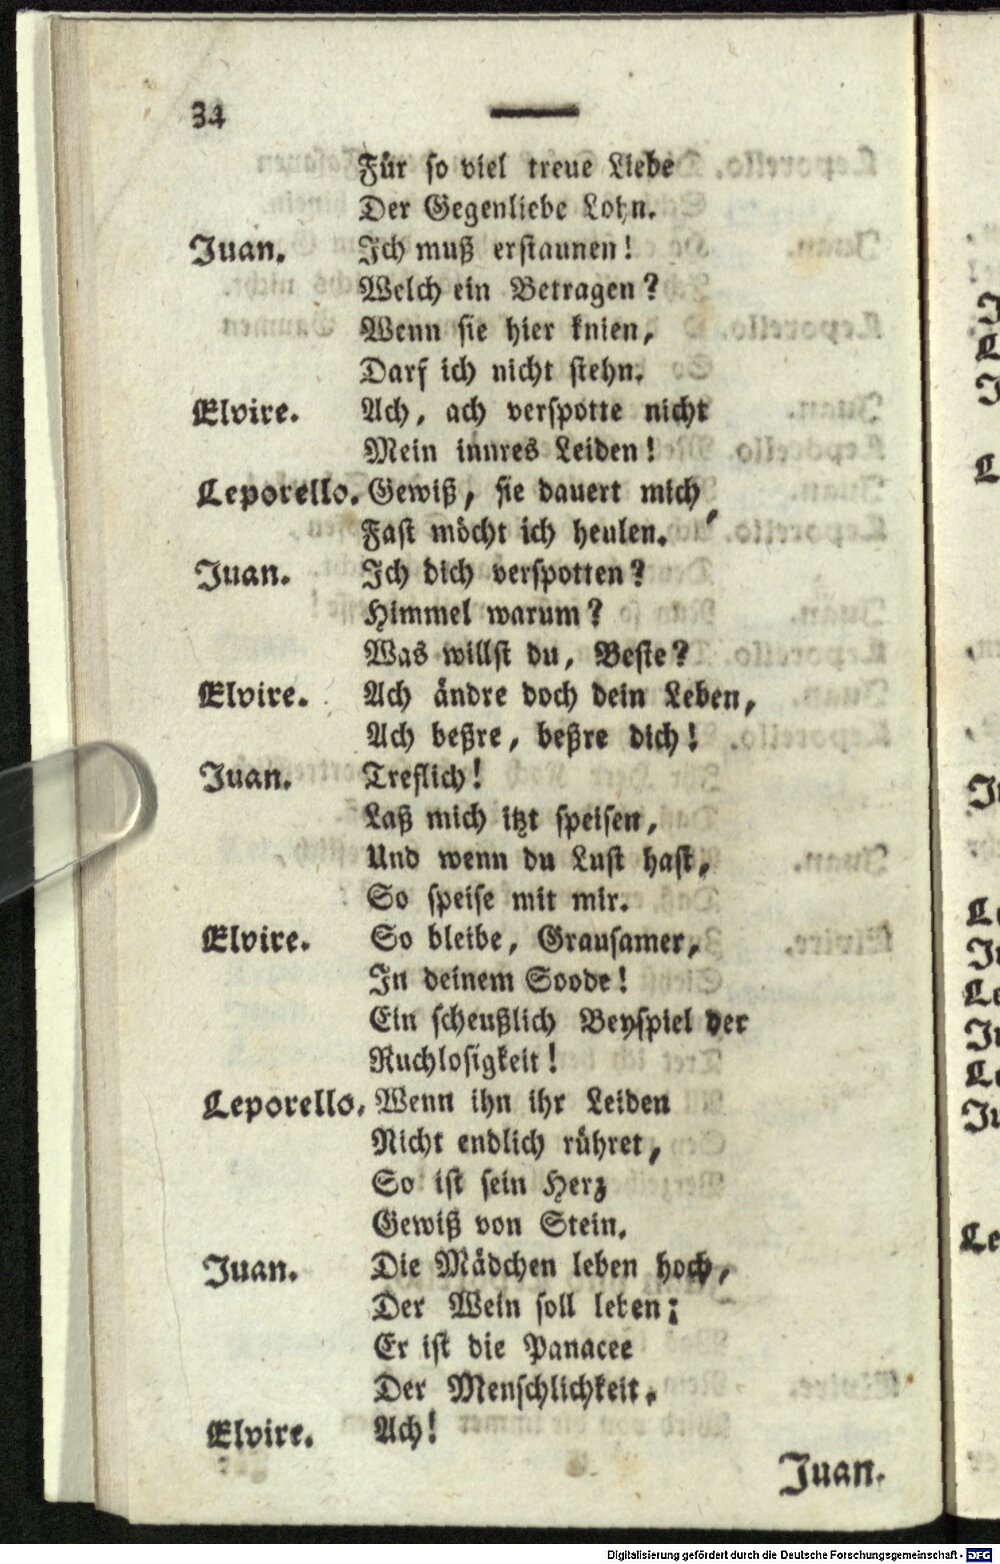 34
Für so viel treue Liebe
Der Gegenliebe Lohn.
Juan. Ich muß erstaunen!
Welch ein Betragen?
Wenn sie hier knien,
Darf ich nicht stehn.
Elvire. Ach, ach verspotte nicht
Mein innres Leiden!
Leporello. Gewiß, sie dauert mich,
Fast möcht ich heulen.
Juan. Ich dich verspotten?
Himmel warum?
Was willst du, Beste?
Elvire. Ach ändre doch dein Leben,
Ach beßre, beßre dich!
Juan. Treflich!
Laß mich itzt speisen,
Und wenn du Lust hast,
So speise mit mir.
Elvire. So bleibe, Grausamer,
In deinem Soode!
Ein scheußlich Beyspiel der
Ruchlosigkeit!
Leporello, Wenn ihn ihr Leiden
Nicht endlich rühret,
So ist sein Herz
Gewiß von Stein.
Juan. Die Mädchen leben hoch,
Der Wein soll leben;
Er ist die Panacee
Der Menschlichkeit.
Elvire. Ach!
Juan.
Digitalisierung gefördert durch die Deutsche Forschungsgemeinschaft - DFG